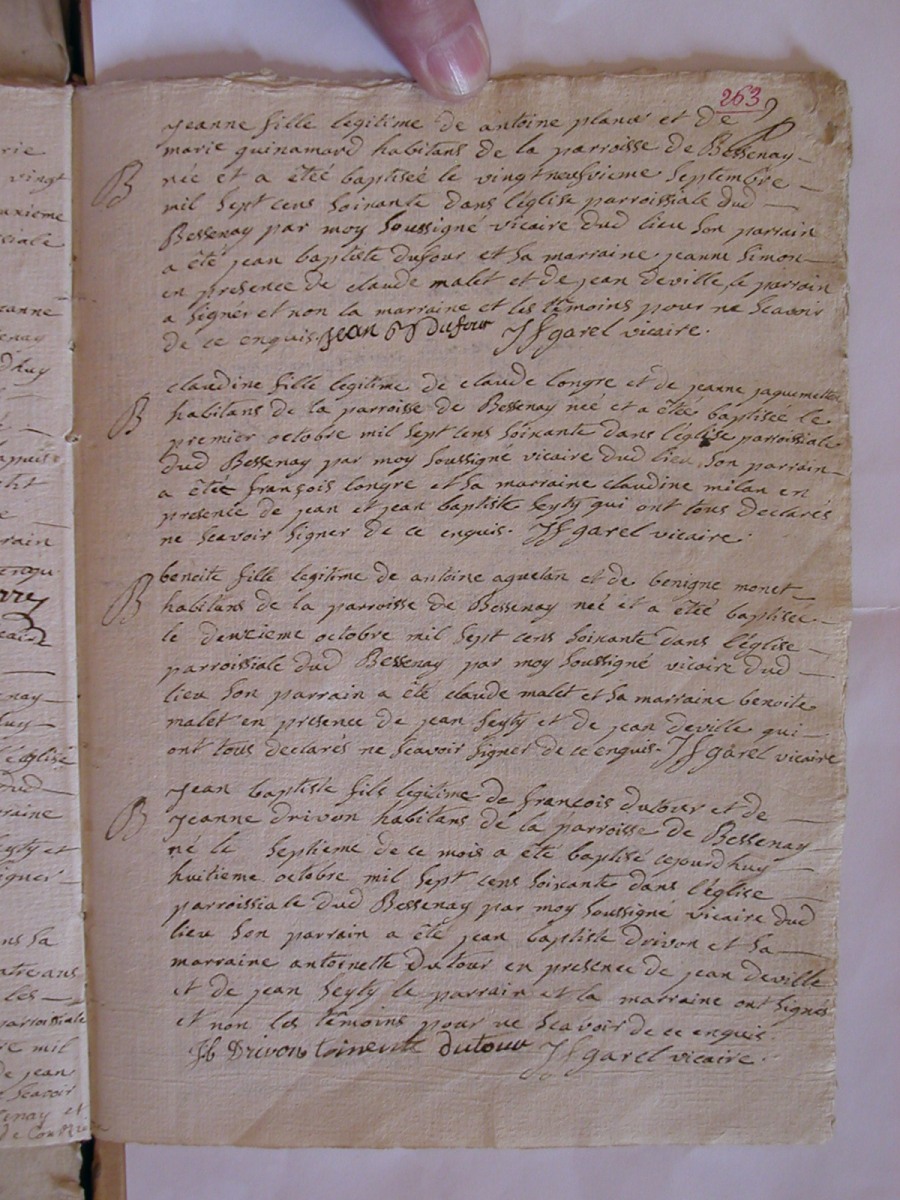 263
jeanne fille legitime de antoine planus et de
marie guinamard habitans de la parroisse de Bessenay
née et a étée baptisée le vingtneufvieme septembre
mil sept cens soixante dans l'église parroissiale dud
Bessenay par moy soussigné vicaire dud lieu son parrain
a été jean baptiste dufour et sa marraine jeanne simon
en presence de claude malet et de jean deville, le parrain
a signer et non la marraine et les témoins pour ne scavoir
de ce enquis. jean B dufour J f garel vicaire.
B
claudine fille legitime de claude longre et de jeanne jaquemette
habitans de la parroisse de Bessenay neé et a étée baptisée le
premier octobre mil sept cens soixante dans l'église parroissiale
dud Bessenay par moy soussigné vicaire dud lieu son parrain
a étée françois longre et sa marraine claudine milan en
presence de jean et jean baptiste seyty qui ont tous declarés
ne scavoir signer de ce enquis. J f garel vicaire.
B
benoite fille legitime de antoine aguetan et de benigne monet
habitans de la parroisse de Bessenay neé et a étée baptisée
le deuxieme octobre mil sept cens soixante dans l'église
parroissiale dud Bessenay par moy soussigné vicaire dud
lieu son parrain a été claude malet et sa marraine benoite
malet en presence de jean seyty et de jean deville qui
ont tous declarés ne scavoir signer de ce enquis. J f garel vicaire
B
jean baptiste fils legitime de francois dutour et de
jeanne drivon habitans de la parroisse de Bessenay
né le septieme de ce mois a été baptisé cejourdhuy
huitieme octobre mil sept cens soixante dans l'église
parroissiale dud Bessenay par moy soussigné vicaire dud
lieu son parrain a été jean baptiste drivon et sa
marraine antoinette dutour en presence de jean deville
et de jean seyty le parrain et la marraine ont signés
et non les témoins pour ne scavoir de ce enquis.
Jb Drivon toinente dutour J f garel vicaire.
B